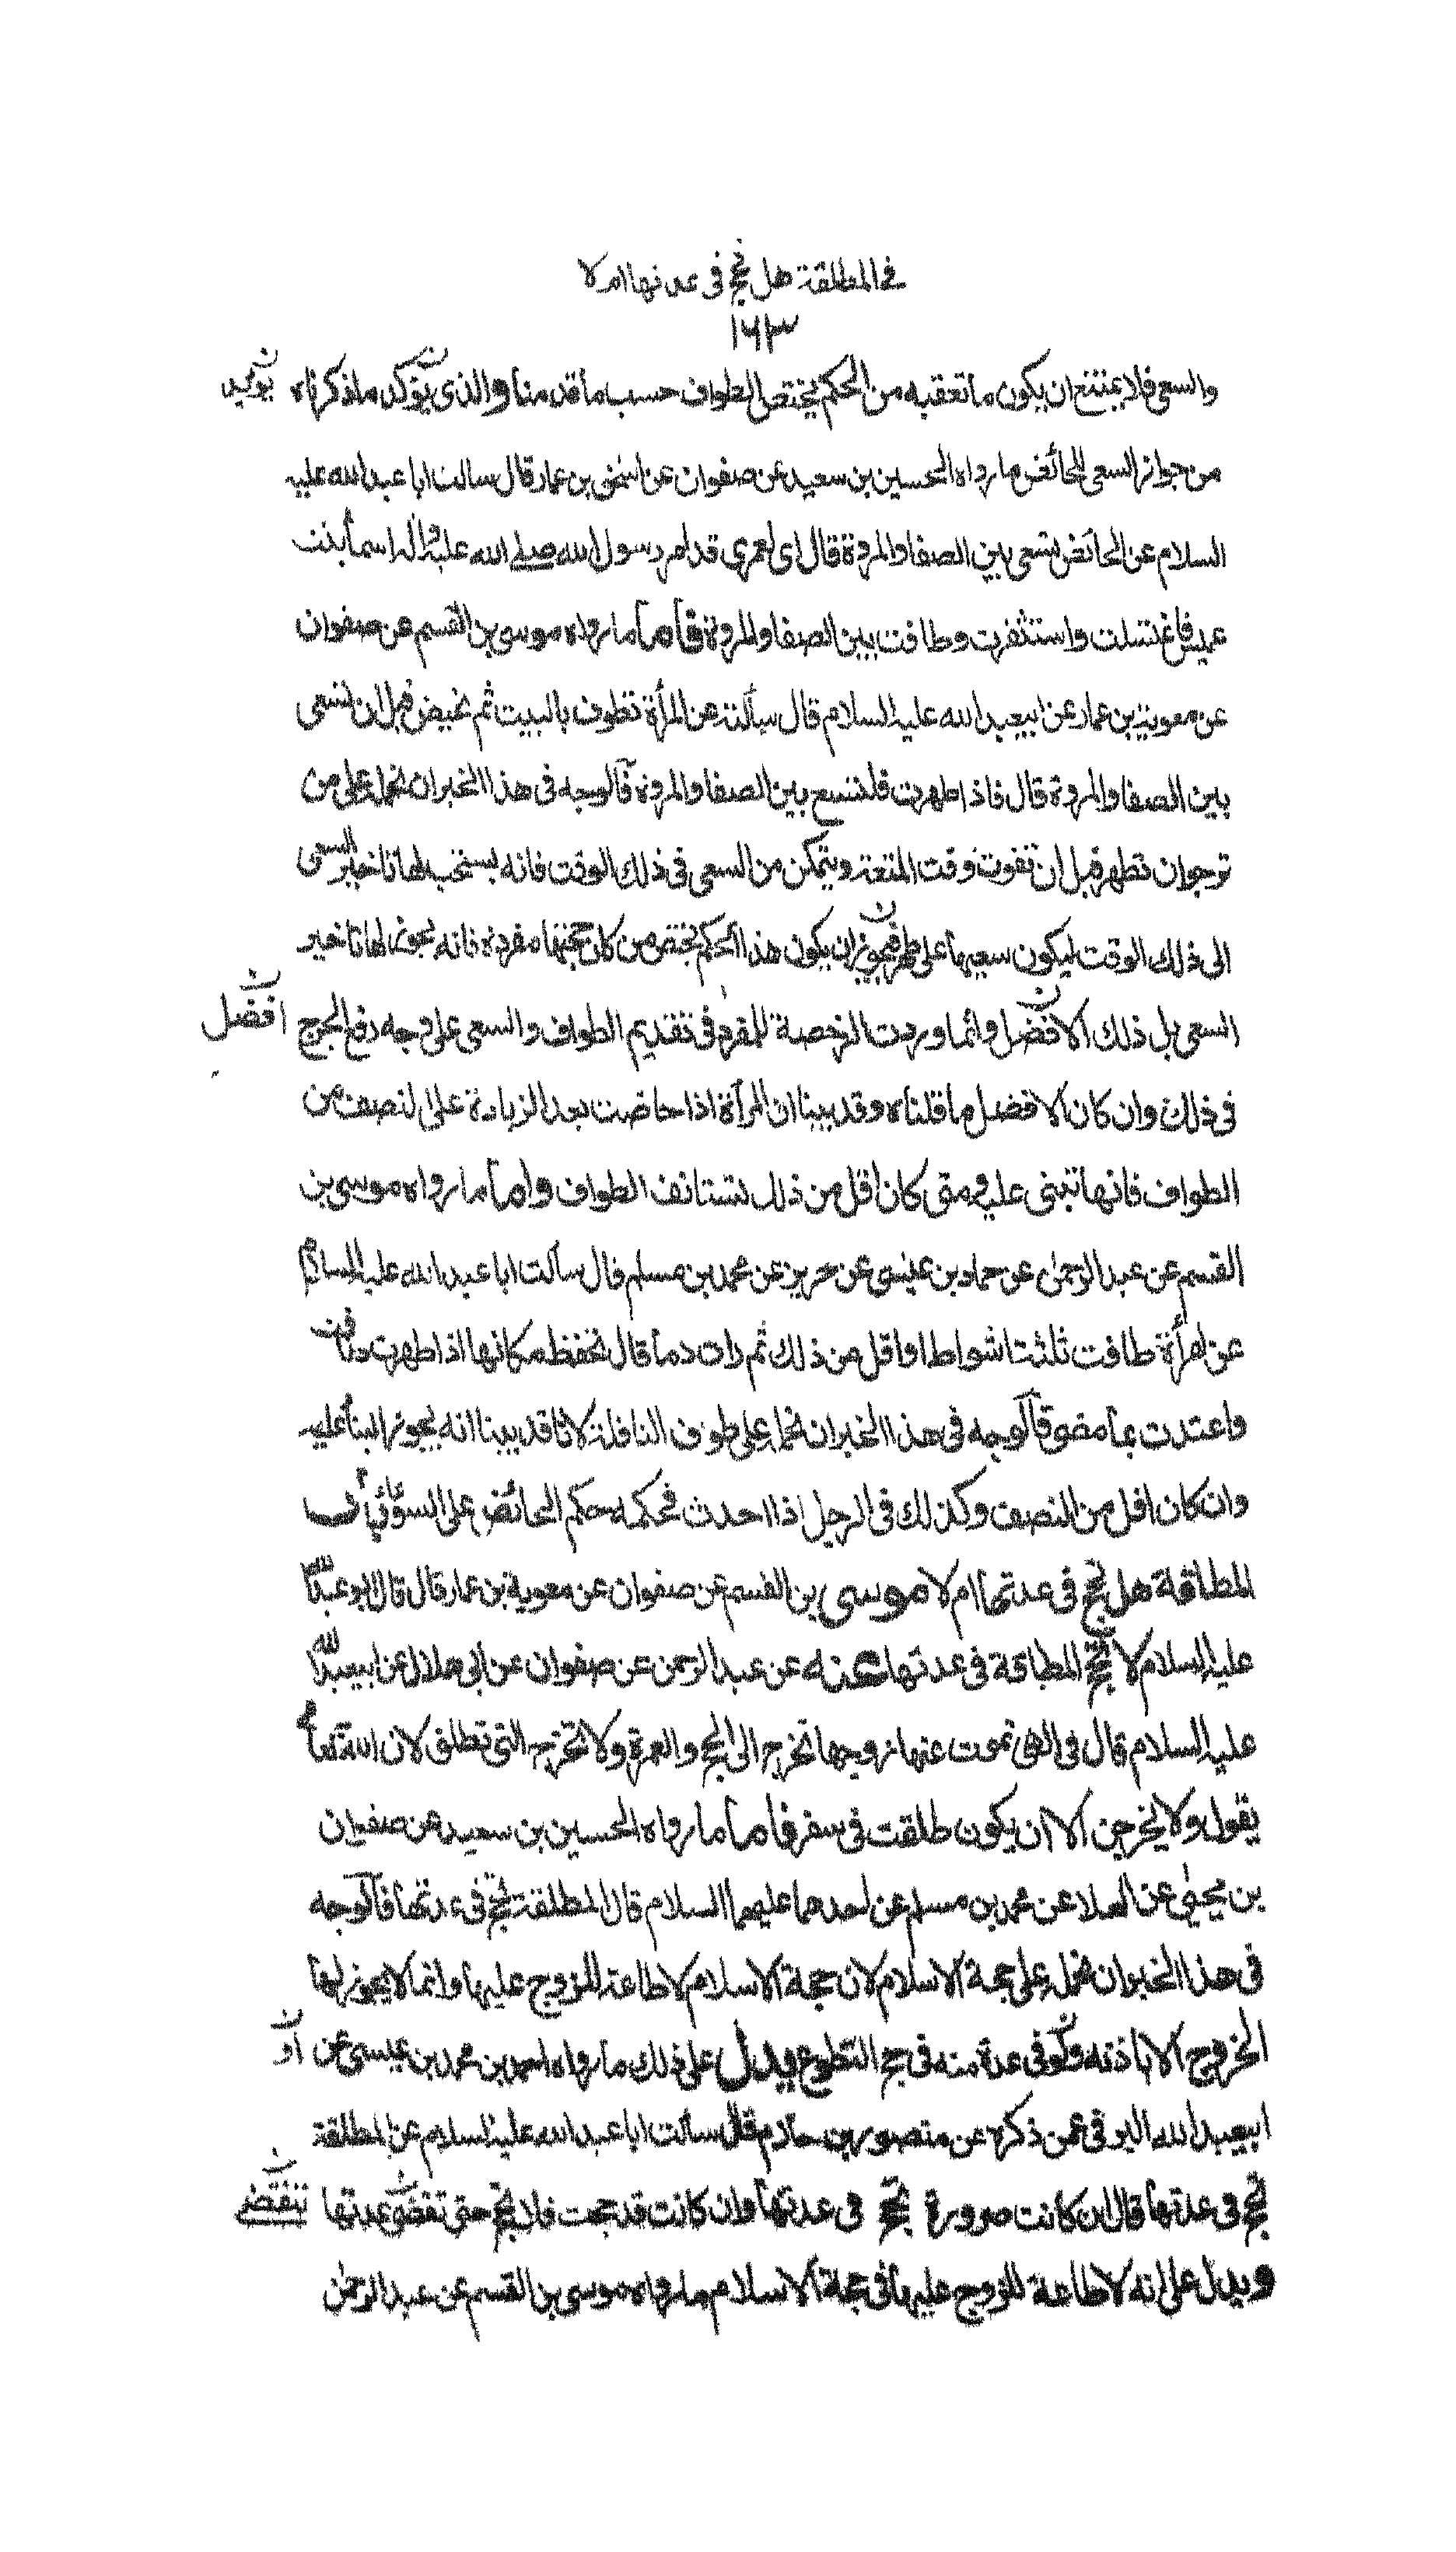 في المطلقة هل تحج فى عدتها ام لا
١٦٣
والسعى فلا يمتنع ان يكون ما تعقبه من الحكم يختص الطواف حسب ما قدمناه والذى يؤكد ما ذكرناه
يؤيد
من جواز السعى للحائض ما رواه الحسين بن سعيد عن صفوان عن اسحق بن عمار قال سالت ابا عبد الله عليه
السلام عن الحائض تسعى بين الصفا والمروة قال اى لعمرى قد امر رسول الله صلى الله عليه واله اسماء بنت
عميس فاغتسلت واستثفرت وطافت بين الصفا والمروة فاما ما رواه موسى بن القسم عن صفوان
عن معوية بن عمار عن ابيعبد الله عليه السلام قال سألته عن المرأة تطوف بالبيت ثم تحيض قبل ان تسعى
بين الصفا والمروة قال فاذا طهرت فلتسع بين الصفا والمروة فالوجه فى هذا الخبر ان نحمله على من
ترجوان تطهر قبل ان تفوت وقت المتعة ويتمكن من السعى فى ذلك الوقت فانه يستحب لها تاخير السعى
الى ذلك الوقت ليكون سعيها على طهر فيجوز ان يكون هذا الحكم يختص من كان حجتها مفردة فانه يجوز لها تاخير
السعى بل ذلك الافضل وانما وردت الرخصة للمفرد فى تقديم الطواف والسعى على وجه رفع الحرج
افضل
فى ذلك وان كان الافضل ما قلناه وقد بينا ان المرأة اذا حاضت بعد الزيادة على النصف من
الطواف فانها تبنى عليه ومتى كان اقل من ذلك تستانف الطواف واما ما رواه موسى بن
القسم عن عبد الرحمن عن حماد بن عيسى عن حريز عن محمد بن مسلم قال سألت ابا عبد الله عليه السلام
عن امرأة طافت ثلثة اشواط او اقل من ذلك ثم رات دما قال تحفظ مكانها اذا طهرت طافت
واعتدت بما مضى فالوجه فى هذا الخبر ان نحمله على طواف النافلة لانا قد بينا انه يجوز البناء عليه
وان كان اقل من النصف وكذلك فى الرجل اذا احدث فحكمه حكم الحائض على السواء باب
المطلقة هل تحج فى عدتها ام لا موسى بن القسم عن صفوان عن معوية بن عمار قال قال ابو عبد الله
عليه السلام لا تحج المطلقة فى عدتها عنه عن عبد الرحمن عن صفوان عن ابى هلال عن ابيعبد الله
عليه السلام قال فى التى تموت عنها زوجها تخرج الى الحج والعمرة ولا تخرج التى تطلق لان الله تعالى
يقول ولا يخرجن الا ان يكون طلقت فى سفر فاما ما رواه الحسين بن سعيد عن صفوان
بن يحيى عن العلا عن محمد بن مسلم عن احدهما عليهما السلام قال المطلقة تحج فى عدتها فالوجه
فى هذا الخبر ان نحمله على حجة الاسلام لان حجة الاسلام لا طاعة للزوج عليها وانما لا يجوز لها
الخروج الا باذنه ولو فى عدة منه فى حج التطوع ويدل على ذلك ما رواه احمد بن محمد بن عيسى عن
او
ابيعبد الله البرقى عمن ذكره عن منصور بن حازم قال سالت ابا عبد الله عليه السلام عن المطلقة
تحج فى عدتها قال ان كانت صرورة تحج فى عدتها وان كانت قد حجت فلا تحج حتى تقضى عدتها
تنقضى
ويدل على انه لا طاعة للزوج عليها فى حجة الاسلام ما رواه موسى بن القسم عن عبد الرحمن